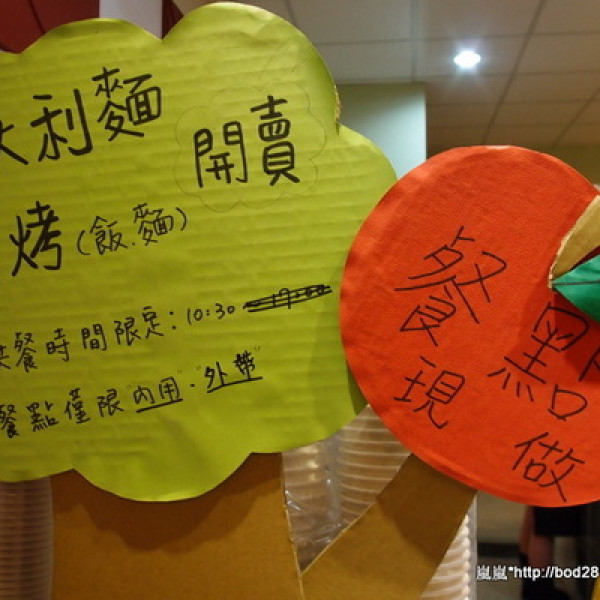 大利麵
開賣
烤(飯.麵)
供餐時間限定：10:30
餐點僅限"內用"."外帶"
餐點
現做
嵐嵐*http://bod28